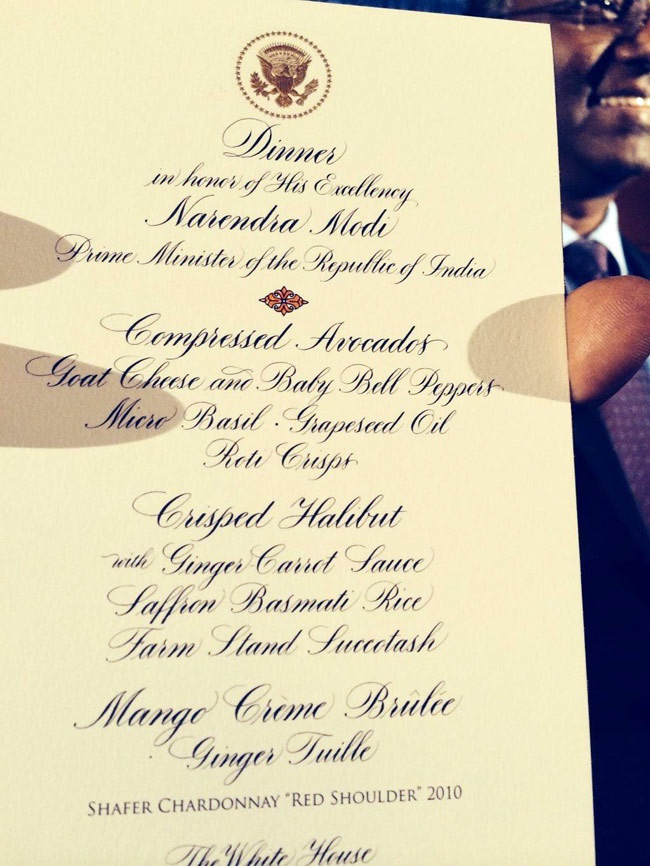 Dinner
in honor of His Excellency
Narendra Modi
Prime Minister of the Republic of India
Compressed Avocados
Goat Cheese and Baby Bell Peppers
Micro Basil · Grapeseed Oil
Roti Crisps
Crisped Halibut
with Ginger Carrot Sauce
Saffron Basmati Rice
Farm Stand Succotash
Mango Crème Brûlée
Ginger Tuille
SHAFER CHARDONNAY "RED SHOULDER" 2010
The White House